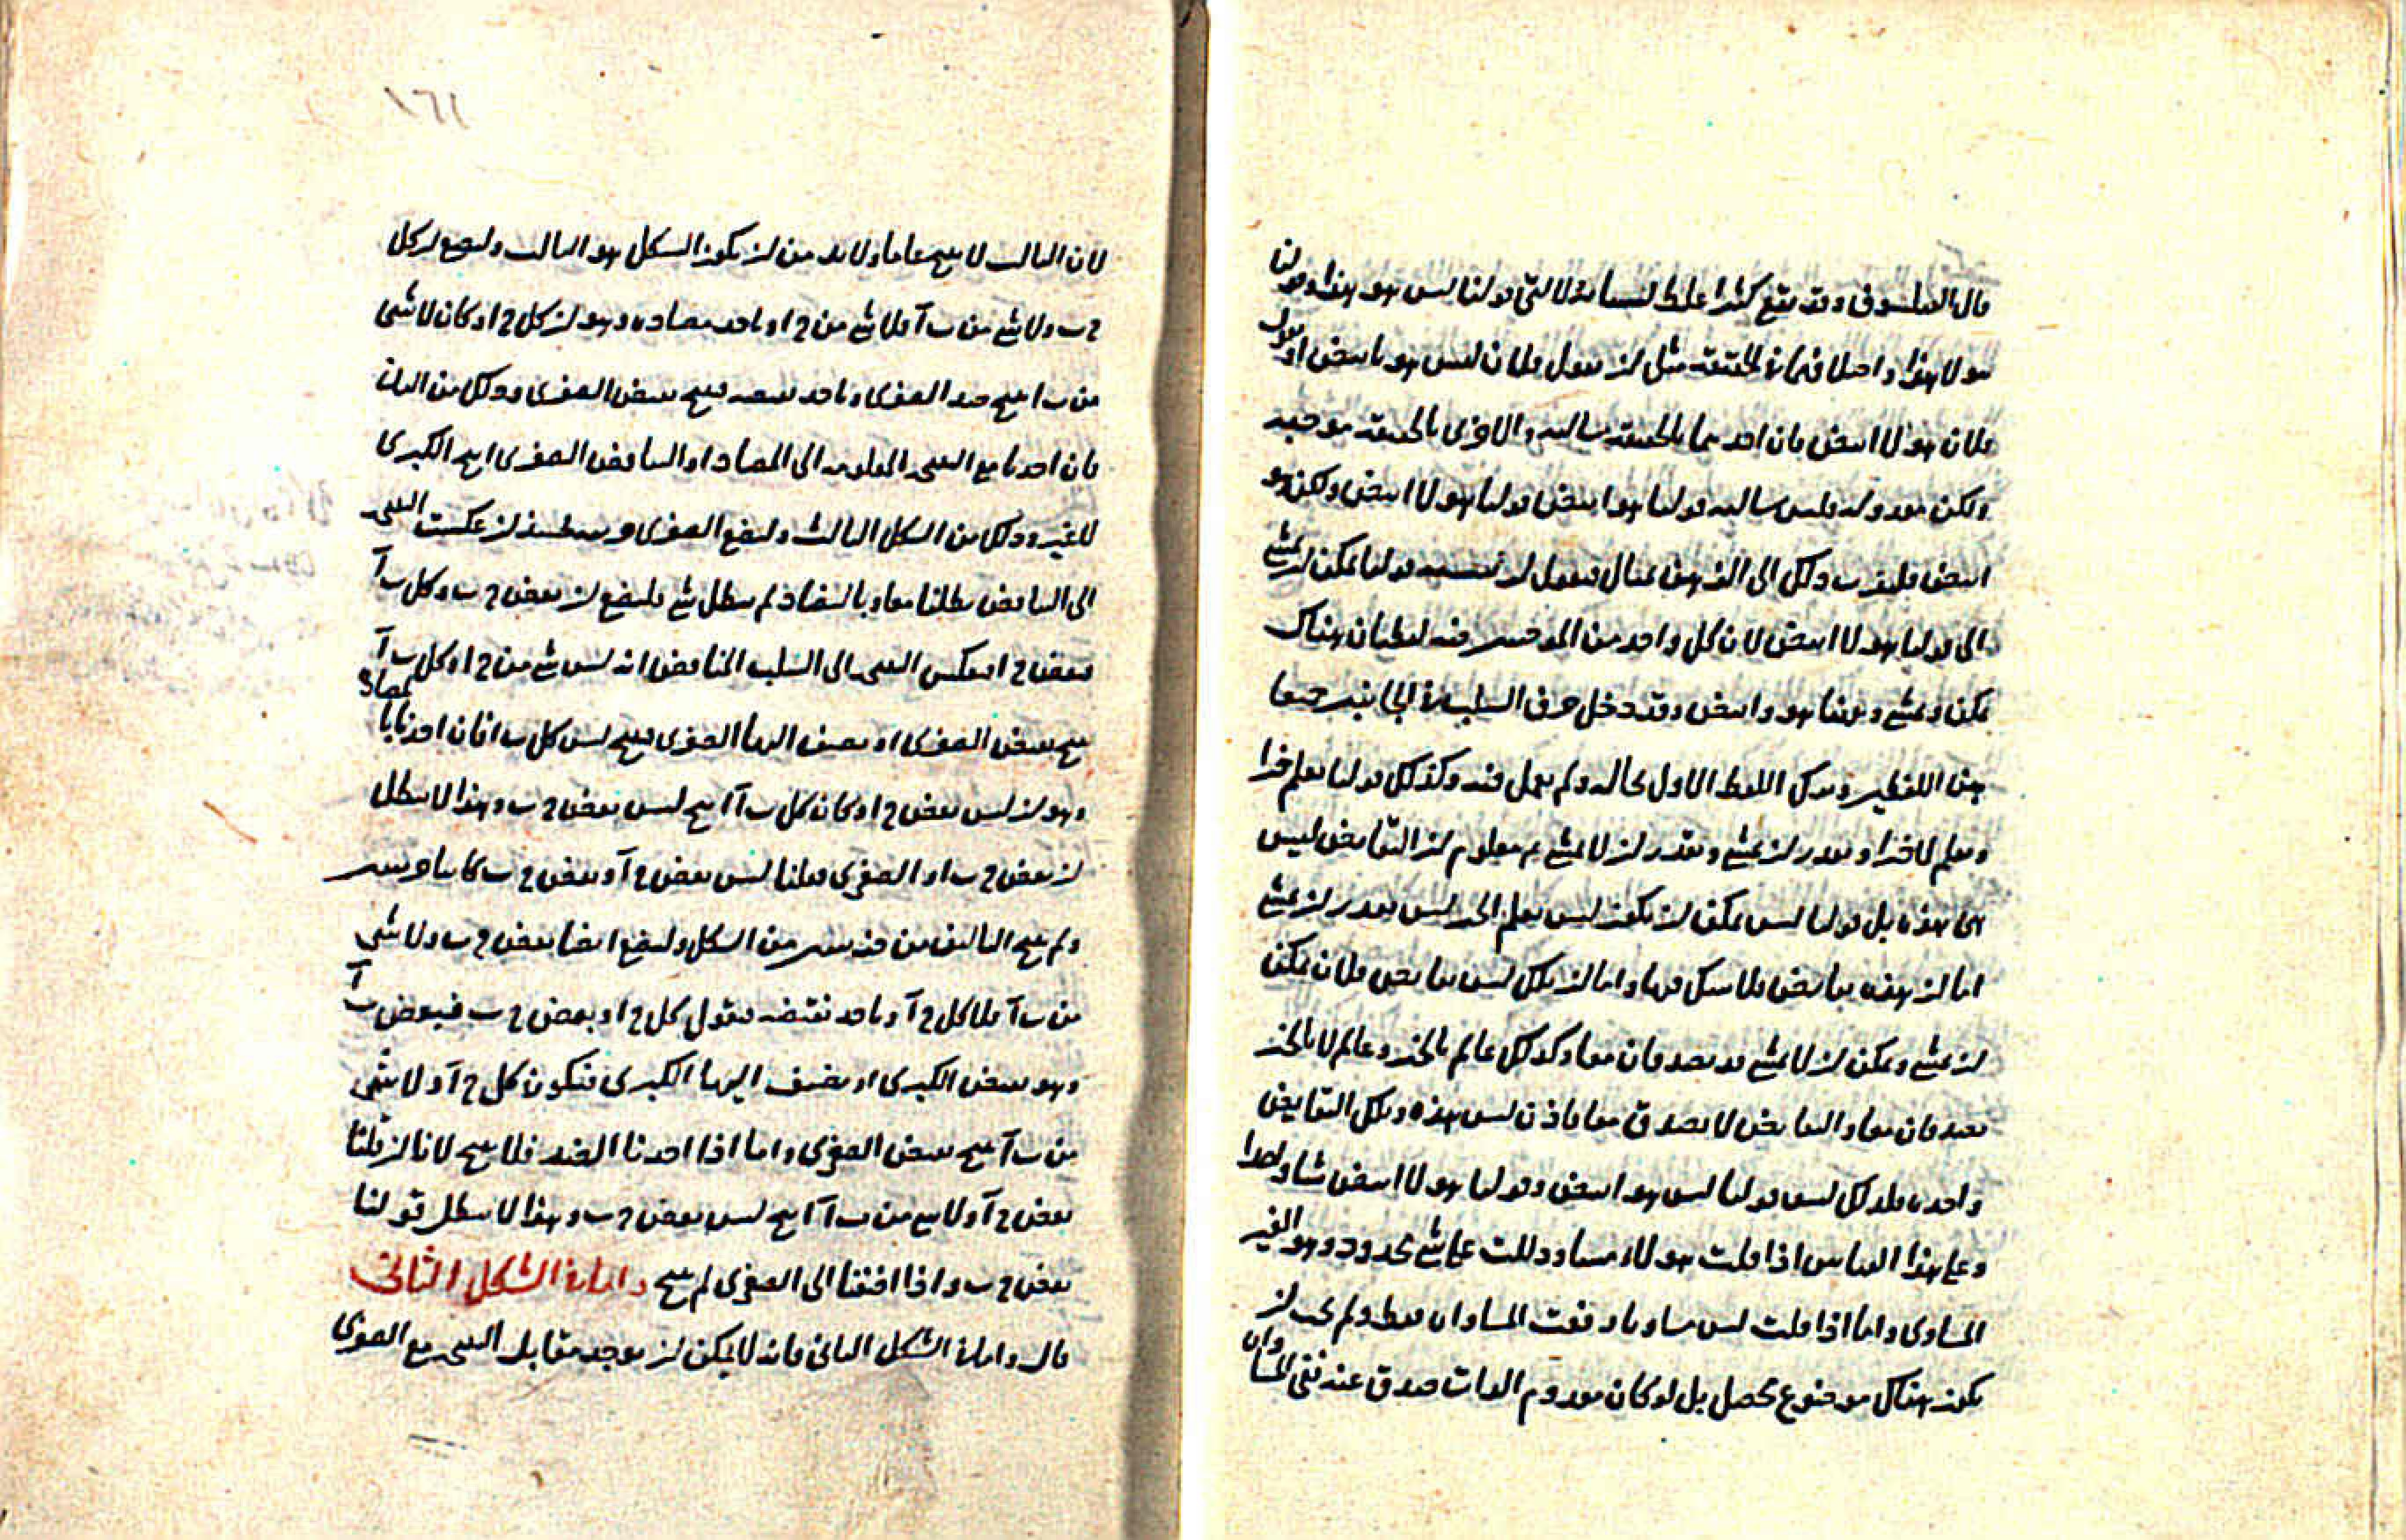 قال الفيلسوف وقد يقع كثيرا غلط لسبب ان لا نثق قولنا ليس هو هذا وقولنا
هو لا هذا واختلافهما في الحقيقة مثل ان نقول فلان ليس هو بابيض او نقول
فلان هو لا ابيض فان احدهما بالحقيقة سالبه والاخرى بالحقيقة موجبه
ولكن معدوله فليس سالبه قولنا هو ابيض قولنا هو لا ابيض ولكن هو
ابيض ذلك الى الذهن بمثال فنقول ان نسبة قولنا يمكن ان يمشي
الى قولنا هو لا ابيض لان كل واحد من الموجبين فيه لفظتان هناك
يمكن ويمشي وههنا هو وابيض وقد دخل حرف السلب في الجانبين جميعا
بين اللفظين وترك اللفظ الاول بحاله ولم يعمل فيه وكذلك قولنا يعلم خيرا
ويعلم لا خيرا ويقدر ان يمشي ويقدر ان لا يمشي ثم معلوم ان النقايض ليس
هى هذه بل قولنا ليس يمكن ان يكون ليس يعلم الخير ليس يقدر ان يمشي
اما ان هذه نقايض فلا شك فيها واما ان تلك ليس نقايض فلان يمكن
ان يمشي ويمكن ان لا يمشي قد يصدقان معا وكذلك عالم بالخير وعالم لا بالخير
يصدقان معا والنقايض لا يصدق معا فاذن ليس هذه وتلك النقايض
واحده فلذلك ليس قولنا ليس هو ابيض وقولنا هو لا ابيض شيا واحدا
وعلى هذا القياس اذا قلت هو لا مساو دللت على شي محدود وهو الغير
المساوى واما اذا قلت ليس مساويا رفعت المساواه فقط ولم يجب ان
يكون هناك موضوع محصل بل لو كان معدوم الذات صدق عنه نفى المساواه
١٦١
لان الثالث لا ينتج عاما ولا بد من ان يكون الشكل هو الثالث وليضع ان كل
ج ب ولا شي من ب آ فلا شي من ج ا وناخذ مضاده وهو ان كل ج ا وكان لا شي
من ب ا ينتج ضد الصغرى وناخذ نقيضه ينتج نقيض الصغرى وذلك من الثانى
فان اخذنا مع النتيجه المقلوبه الى المضاد او النقايض الصغرى انتج الكبرى
وذلك من الشكل الثالث وليضع الصغرى جزئيه فحينئذ ان عكست النتيجه
الى النقايض بطلتا معا وبالتضاد لم يبطل شي فليضع ان بعض ج ب وكل ب آ
فبعض ج ا نعكس النتيجه الى السلب المناقض انه ليس شي من ج ا وكل ب آ
ينتج نقيض الصغرى او نضيف اليها الصغرى فينتج ليس كل ب ا فان اخذناها بالتضاد
وهو ان ليس بعض ج ا وكان كل ب آ انتج ليس بعض ج ب وهذا لا يبطل
ان بعض ج ب او الصغرى فقلنا ليس بعض ج آ وبعض ج ب كانتا جزئيتين
ولم ينتج التاليف من جزئيتين من الشكل وليضع ايضا بعض ج ب ولا شي
من ب آ فلا كل ج آ وناخذ نقيضه فنقول كل ج ا وبعض ج ب فبعض ب آ
وهو نقيض الكبرى او نضيف اليها الكبرى فيكون كل ج آ ولا شي
من ب آ ينتج نقيض الصغرى واما اذا اخذنا الضد فلا ينتج لانا ان قلنا
بعض ج آ ولا شي من ب آ انتج ليس بعض ج ب وهذا لا يبطل قولنا
بعض ج ب واذا اضفنا الى الصغرى لم ينتج واما في الشكل الثانى
قال واما في الشكل الثانى فانه لا يمكن ان يوجد مقابل النتيجه مع الصغرى